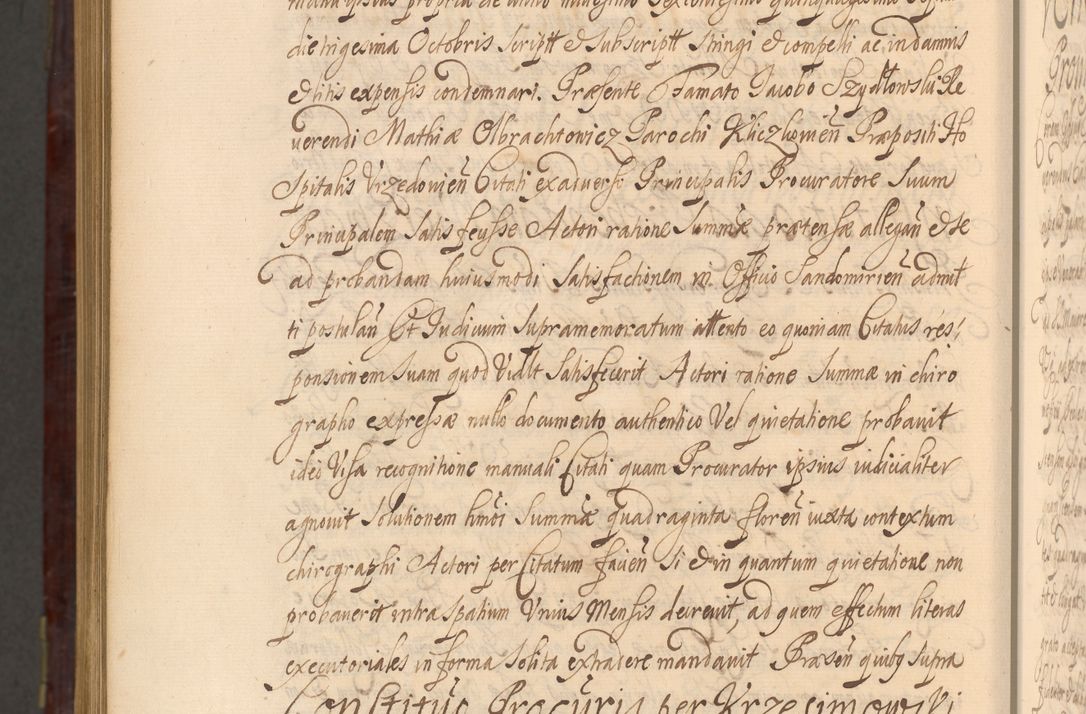 manu ipsius propria de anno millesimo sexcentesimo quinquagesimo
die trigesima Octobris scriptt et subscriptt stringi et compelli ac in damnis
et litis expensis condemnari. Præsente Famato Jacobo Szydłowski Re
uerendi Mathiæ Olbrachtowicz Parochi Præpositi Ho
spitalis Vrzedouień Citati ex aduerso Principalis Procuratore Suum
Principalem Satis fecisse Actori ratione Summæ prætensæ allegań et se
ad probandam huiusmodi Satisfactionem in Officio Sandomirień admit
ti postulań Et Judicium supramemoratum attento eo quoniam Citatus res
ponsionem Suam quod Satisfecerit Actori ratione Summæ in chiro
grapho expressæ nullo documento authentico Vel quietatione probauit
ideo Visa recognitione manuali Citati quam Procurator ipsius iudicialiter
agnouit Solutionem hmōi Summæ quadraginta floreń iuxta contextum
chirographi Actori per Citatum facień Si et in quantum quietatione non
probauerit intra spatium Vnius Mensis decreuit, ad quem effectum literas
executoriales in forma Solita extradere mandauit Præseń quibq supra
Constitutio Procuris per Krzesimowski